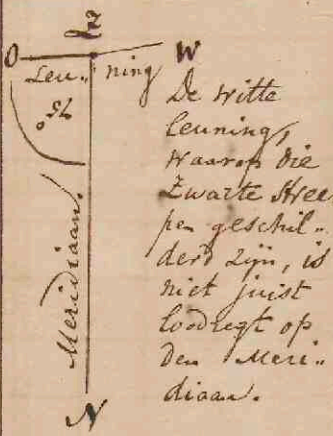 Z
O W
Leu„ ning
75°
Meridiaan.
N
De witte
leuning,
waarop die
Zwarte stree
pen geschil„
derd zijn, is
niet juist
loodregt op
den Meri„
diaan.